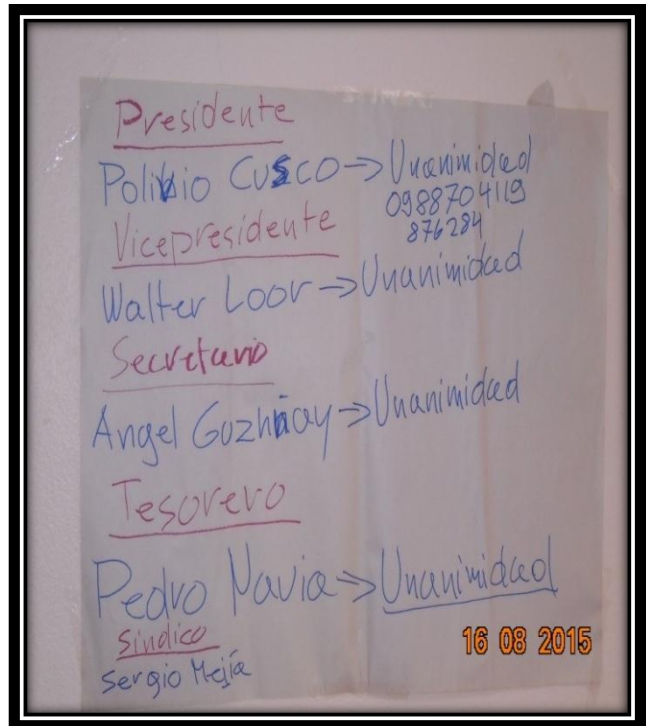 Presidente
Polivio Cusco → Unanimidad
0988704119
876284
Vicepresidente
Walter Loor → Unanimidad
Secretario
Angel Guzhñay → Unanimidad
Tesorero
Pedro Navia → Unanimidad
Sindico
Sergio Mejía
16 08 2015